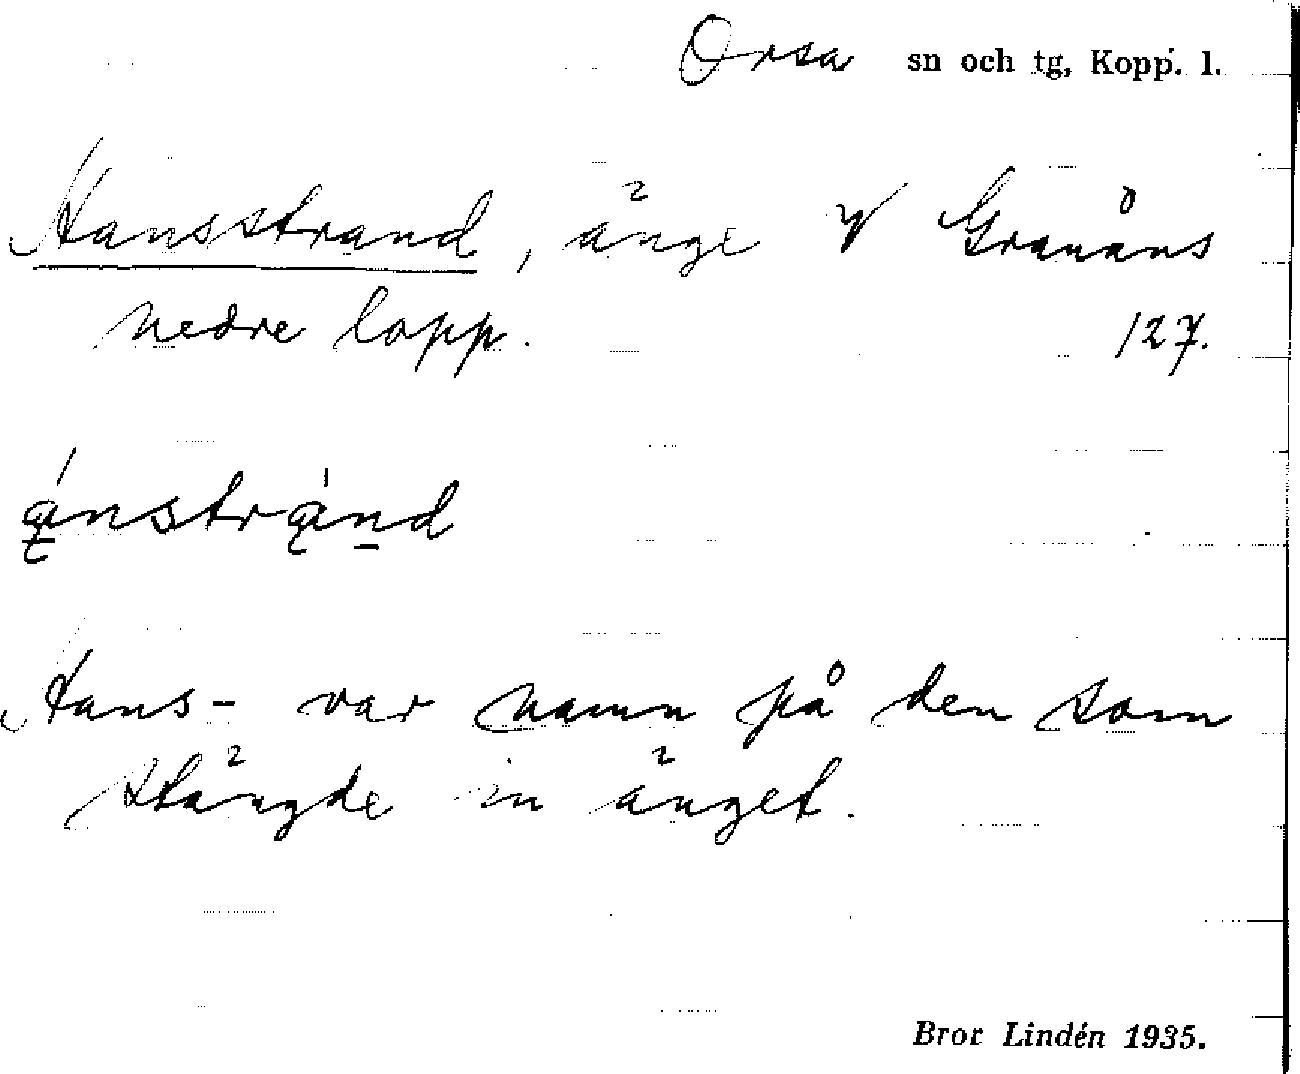 Orsa sn och tg, Kopp. l.
Hansstrand, änge v Granåns
nedre lopp. 127.
ánstrànd
Hans- var namn på den som
stängde in änget.
Bror Lindén 1935.